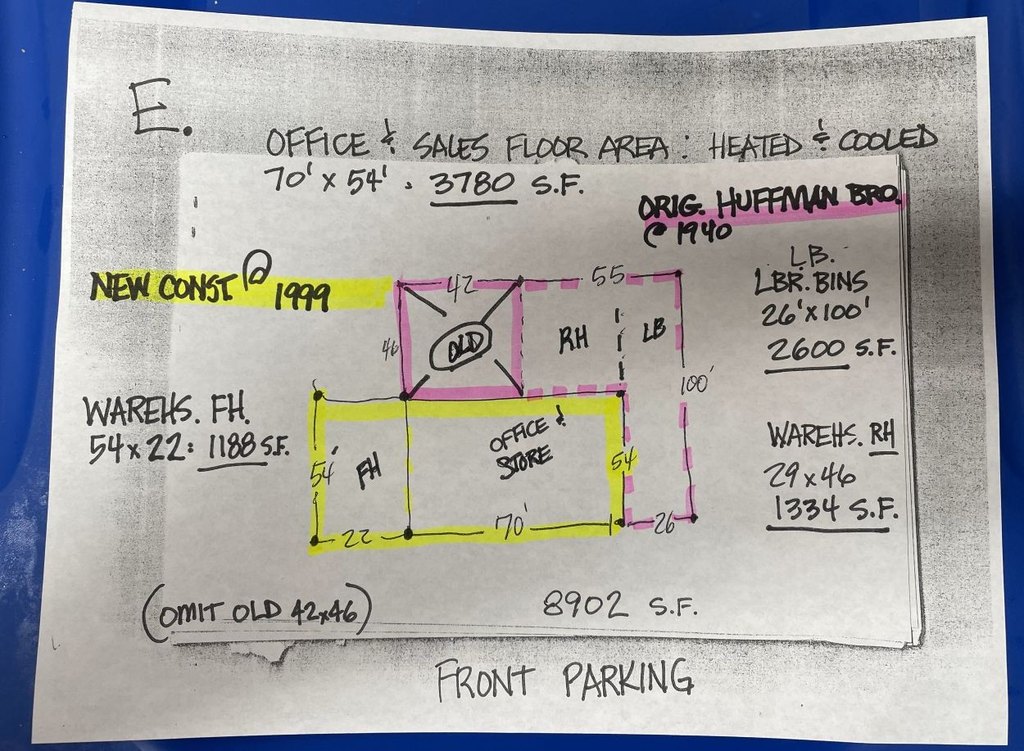 E.
OFFICE & SALES FLOOR AREA : HEATED & COOLED
70' x 54' . 3780 S.F.
ORIG. HUFFMAN BRO.
@ 1940
NEW CONST @ 1999
42
55
L.B.
LBR. BINS
26' x 100'
2600 S.F.
46
OLD
RH
LB
100'
WAREHS. FH.
54 x 22 : 1188 S.F.
OFFICE &
STORE
54'
FH
54
WAREHS. RH
29 x 46
1334 S.F.
22
70'
26
(OMIT OLD 42x46)
8902 S.F.
FRONT PARKING